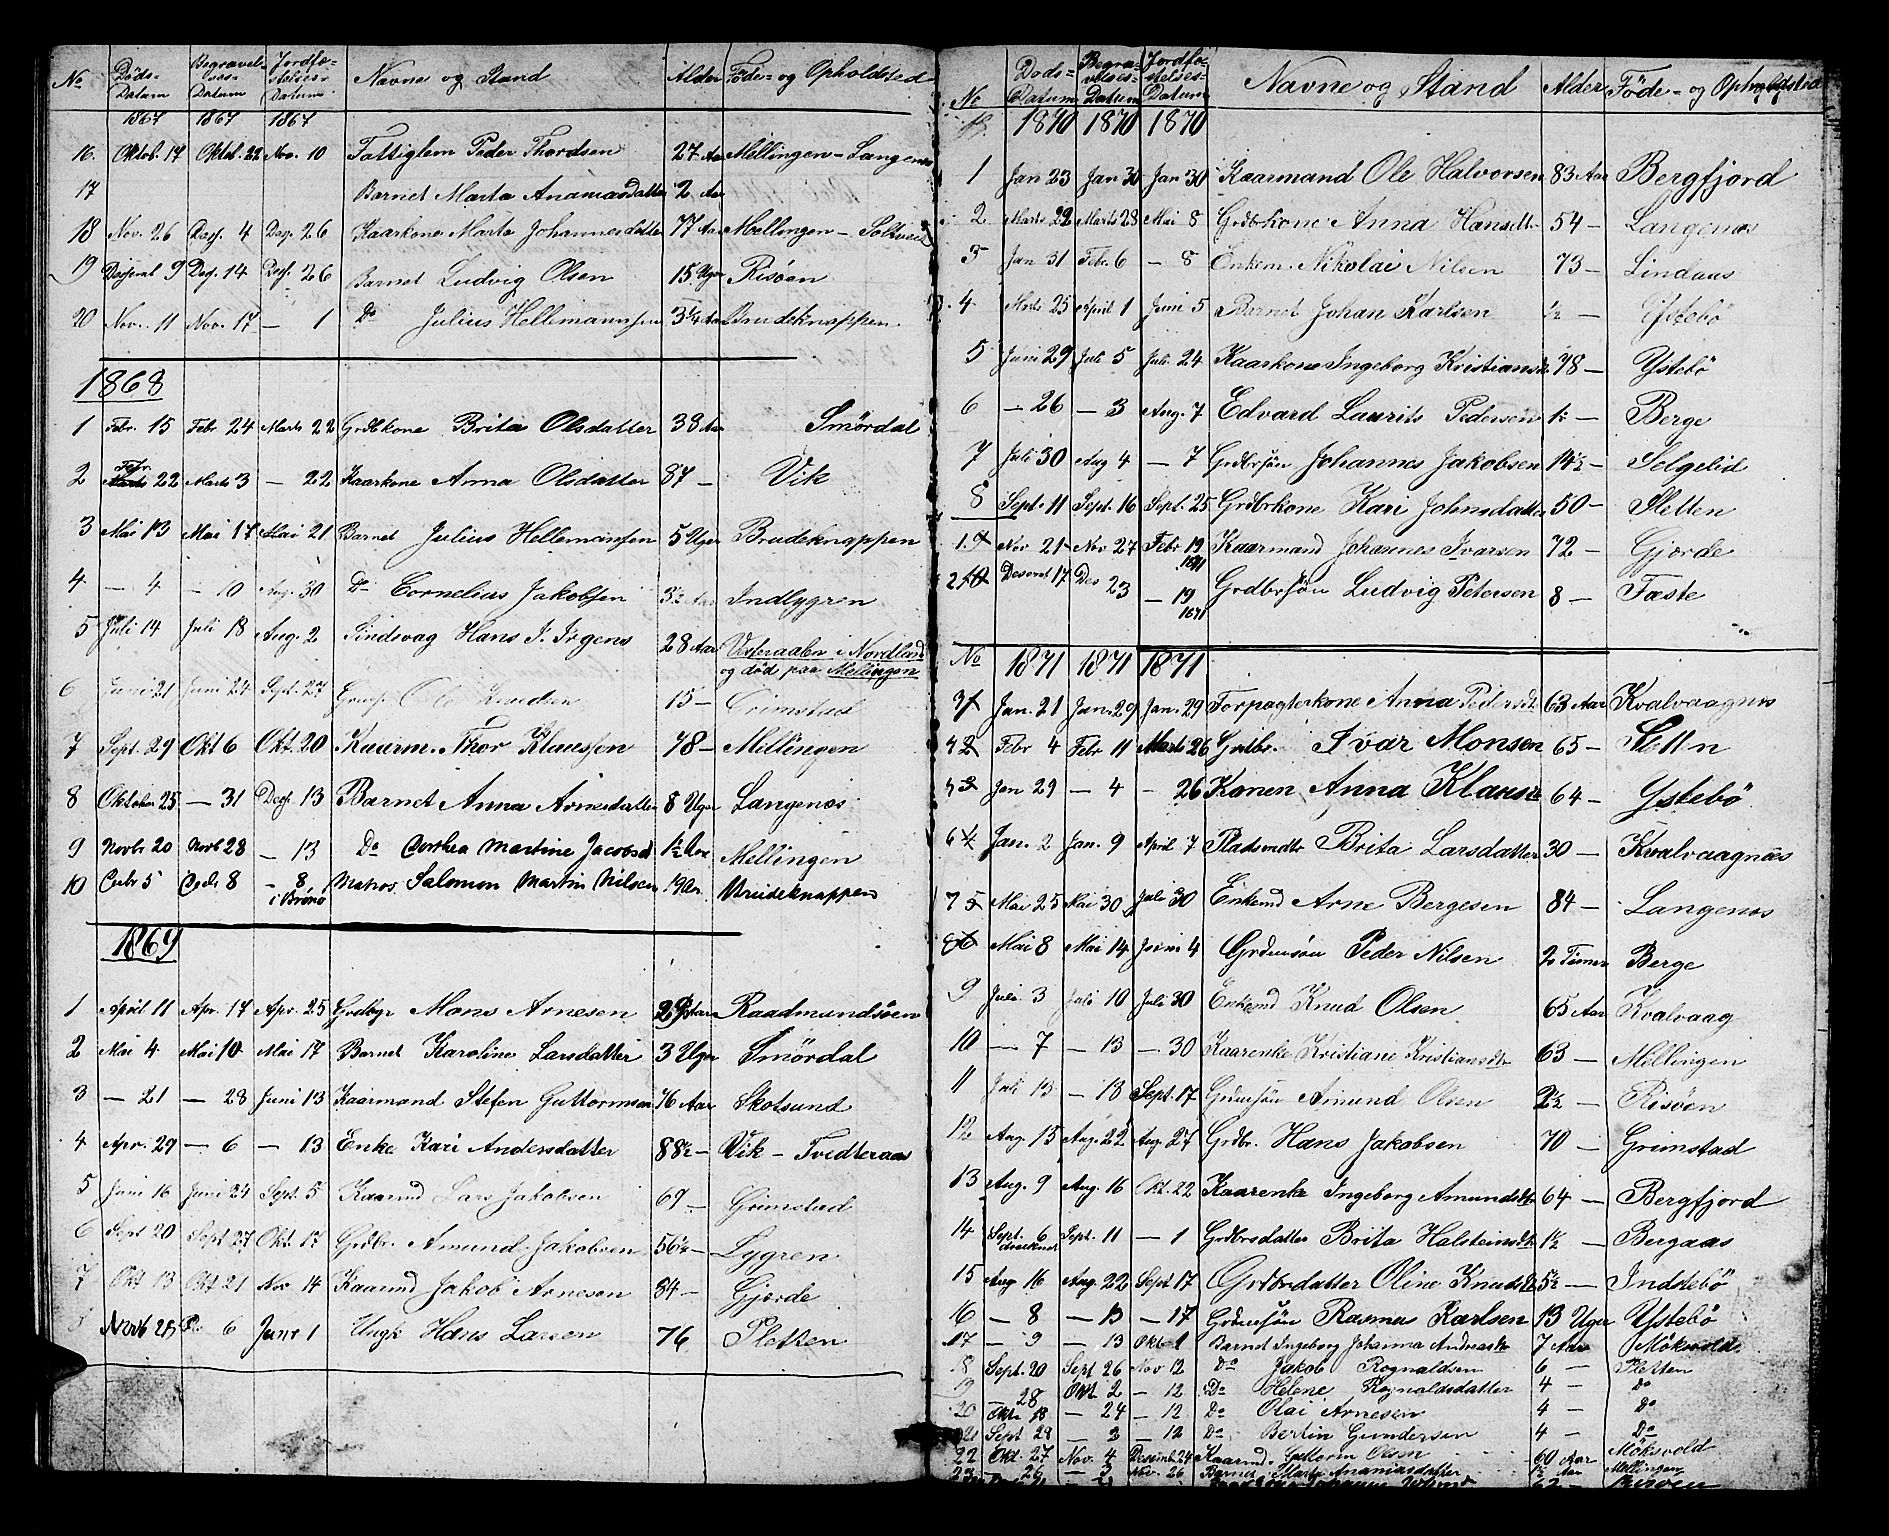 No Døds- Datum Begravel- ses- Datum Jordfæ- stelses- Datum Navne og Stand Alder Føde- og Opholdsted
1867 1867 1867
16. Oktob. 17 Oktob. 22 Nov. 10 Fattiglem Peder Thordsen 27 Aar Mellingen - Langenæs
17 Barnet Marta Ananiasdatter 2 Aar
18 Nov. 26 Desf. 4 Desf. 26 Kaarkone Marta Johannesdatter 77 Aar Mellingen - Soltveit
19 Desfembr 9 Desf. 14 Desf. 26 Barnet Ludvig Olsen 15 Uger Risøen
20 Nov. 11 Nov. 17 — 1 Do Julius Hellemannsen 3¼ Aar Brudeknappen
1868
1 Febr. 15 Febr 24 Marts 22 Grdbkone Brita Olsdatter 38 Aar Smørdal
2 Febr. 22 Marts 3 — 22 Kaarkone Anna Olsdatter 87 — Vik
3 Mai 13 Mai 17 Mai 21 Barnet Julius Hellemansen 5 Uger Brudeknappen
4 — 4 — 10 Aug. 30 Do Cornelius Jakobsen 3½ Aar Indlygren
5 Juli 14 Juli 18 Aug. 2 Sindsvag Hans J. Irgens 28 Aar Vesteraalen i Nordland
og død paa Mellingen
6 Juni 21 Juni 24 Sept. 27 Ole Knudsen 15 — Grimstad
7 Sept. 29 Okt 6 Okt. 20 Kaarm. Thor Klaussen 78 — Mellingen
8 Oktober 25 — 31 Desf. 13 Barnet Anna Arnesdatter 8 Uger Langenæs
9 Novbr 20 Novb 28 — 13 Do Dorthea Martine Jacobsd 1½ Aar Mellingen
10 Decbr 5 Decb 8 — 8 i Bremo Matros Salomon Martin Nilsen 19 Aar Brudeknappen
1869
1 April 11 Apr. 17 Apr. 25 Grdbgr Mons Arnesen 29 Aar Raadmundsøen
2 Mai 4 Mai 10 Mai 17 Barnet Karoline Larsdatter 3 Uger Smørdal
3 — 21 — 28 Juni 13 Kaarmand Stefen Guttormsen 76 Aar Skotsund
4 Apr. 29 — 6 — 13 Enke Kari Andersdatter 88½ — Vik - Tvedteraas
5 Juni 16 Juni 24 Sept. 5 Kaarmd Lars Jakobsen 69 — Grimstad
6 Sept 20 Sept 27 Okt. 17 Grdbr. Amund Jakobsen 56½ — Lygren
7 Okt 13 Okt 21 Nov 14 Kaarmd Jakob Arnesen 84 — Gjørde
Novb 28 6 1 Ungk Hans Larsen 76 Sletten
No Døds- Datum Begra- velses- Datum Jordfæ- stelses- Datum Navne og Stand Alder Føde- og Opholdsted
1870 1870 1870
1 Jan 23 Jan 30 Jan 30 Kaarmand Ole Halvorsen 83 Aar Bergfjord
2 Marts 22 Marts 28 Mai 8 Grdbrkone Anna Hansdtr 54 — Langenæs
3 Jan 31 Febr. 6 — 8 Enkem. Nikolai Nilsen 73 — Lindaas
4 Marts 25 April 1 Juni 5 Barnet Johan Karlsen ½ — Ystebö
5 Juni 29 Juli 5 Juli 24 Kaarkone Ingeborg Kristiansdtr 78 — Ystebö
6 — 26 — 3 Aug. 7 Edvard Laurits Pedersen Berge
7 Juli 30 Aug 4 — 7 Grdbrsøn Johannes Jakobsen 14½ — Solgelid
8 Sept. 11 Sept. 16 Sept. 25 Grdbrkone Kari Johnsdatter 50 — Sletten
1. 9 Nov 21 Nov 27 Febr 19 1871 Kaarmand Johannes Ivarsen 72 — Gjørde
2 10 Desembr 17 Des 23 — 19 1871 Grdbrsøn Ludvig Petersen 8 — Fæste
No 1871 1871 1871
3 1 Jan. 21 Jan. 29 Jan. 29 Forpagterkone Anna Pedersdtr 63 Aar Kvalvaagnes
4 2 Febr 4 Febr 11 Marts 26 Grdbr. Ivar Monsen 65 — Sletten
5 3 Jan 29 — 4 — 26 Konen Anna Klausdtr 64 — Ystebö
6 4 Jan. 2 Jan. 9 April 7 Pladsmdtr Brita Larsdatter 30 — Kvalvaagnæs
7 5 Mai 25 Mai 30 Juli 30 Enkemd Arne Bergesen 84 — Langenæs
8 6 Mai 8 Mai 14 Juni 4 Grdmsøn Peder Nilsen 2 Timer Berge
9 Juli 3 Juli 10 Juli 30 Enkemd Knud Olsen 65 Aar Kvalvaag
10 — 7 — 13 — 30 Kaarenke Kristiane Kristiansdtr 63 — Mellingen
11 Juli 13 — 18 Sept. 17 Grdmsøn Amund Olsen 2½ — Risøen
12 Aug. 15 Aug. 22 Aug. 27 Grdbr. Hans Jakobsen 70 — Grimstad
13 Aug. 9 Aug. 16 Okt. 22 Kaarenke Ingeborg Amundsdtr 64 — Bergfjord
14 Sept. 6 druknet Sept. 11 — 1 Grdbrsdatter Brita Halsteinsdtr 1½ — Bergaas
15 Aug 16 Aug. 22 Sept 17 Grdbrdatter Oline Knudsdtr 5½ — Inddebö
16 — 8 — 13 — 17 Grdmsøn Rasmus Karlsen 13 Uger Ystebö
17 — 9 — 13 Okt 1 Barnet Ingeborg Johanna Andreasdtr 7 Aar Möksvold
18 Sept. 20 Sept 26 Nov 12 Do Jakob Rognaldsen 6 — Sletten
19 — 28 Okt 2 — 12 Do Helene Rognaldsdatter 4 — Do
20 Okt. 18 — 24 — 12 Do Olai Arnesen 4 — Do
21 Sept 28 — 2 — 12 Do Bertin Gundersen 4 — Do
22 Okt. 27 Nov. 4 Desembr 24 Kaarmd. Guttorm Olsen 60 Aar Möksvold
23 — 26 — 3 Nov. 26 Barnet Marta Ananiasdatter 1½ Aar Mellingen